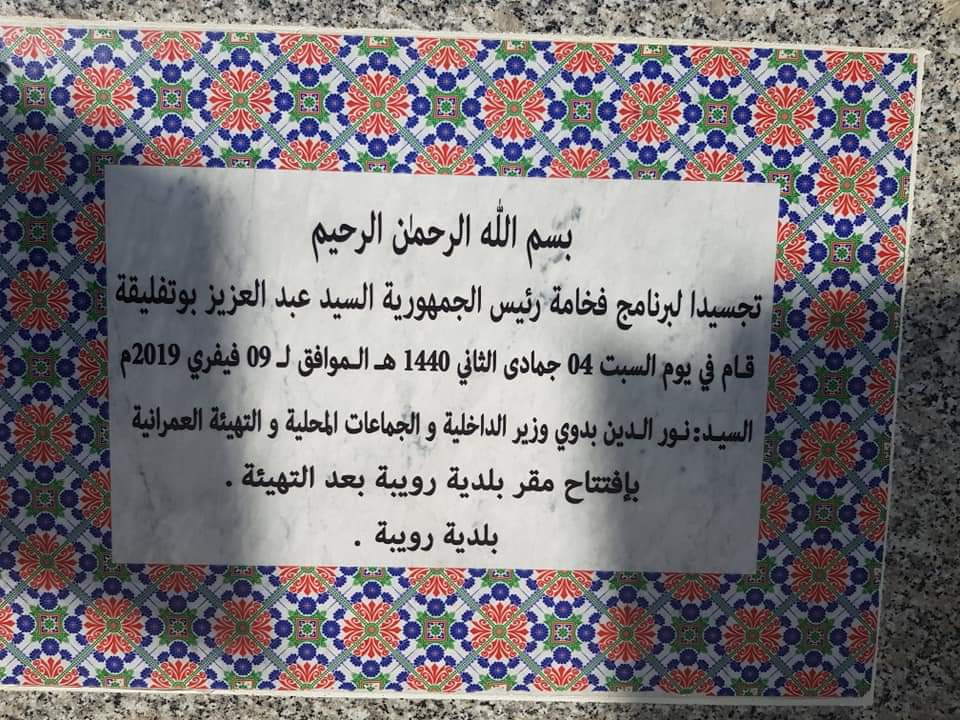 بسم الله الرحمٰن الرحيم
تجسيدا لبرنامج فخامة رئيس الجمهورية السيد عبد العزيز بوتفليقة
قـام في يوم السبت 04 جمادى الثاني 1440 هـ الـموافق لـ 09 فيفري 2019م
السيـد: نـور الـدين بدوي وزير الداخلية و الجماعات المحلية و التهيئة العمرانية
بإفتتاح مقر بلدية رويبة بعد التهيئة .
بلدية رويبة .